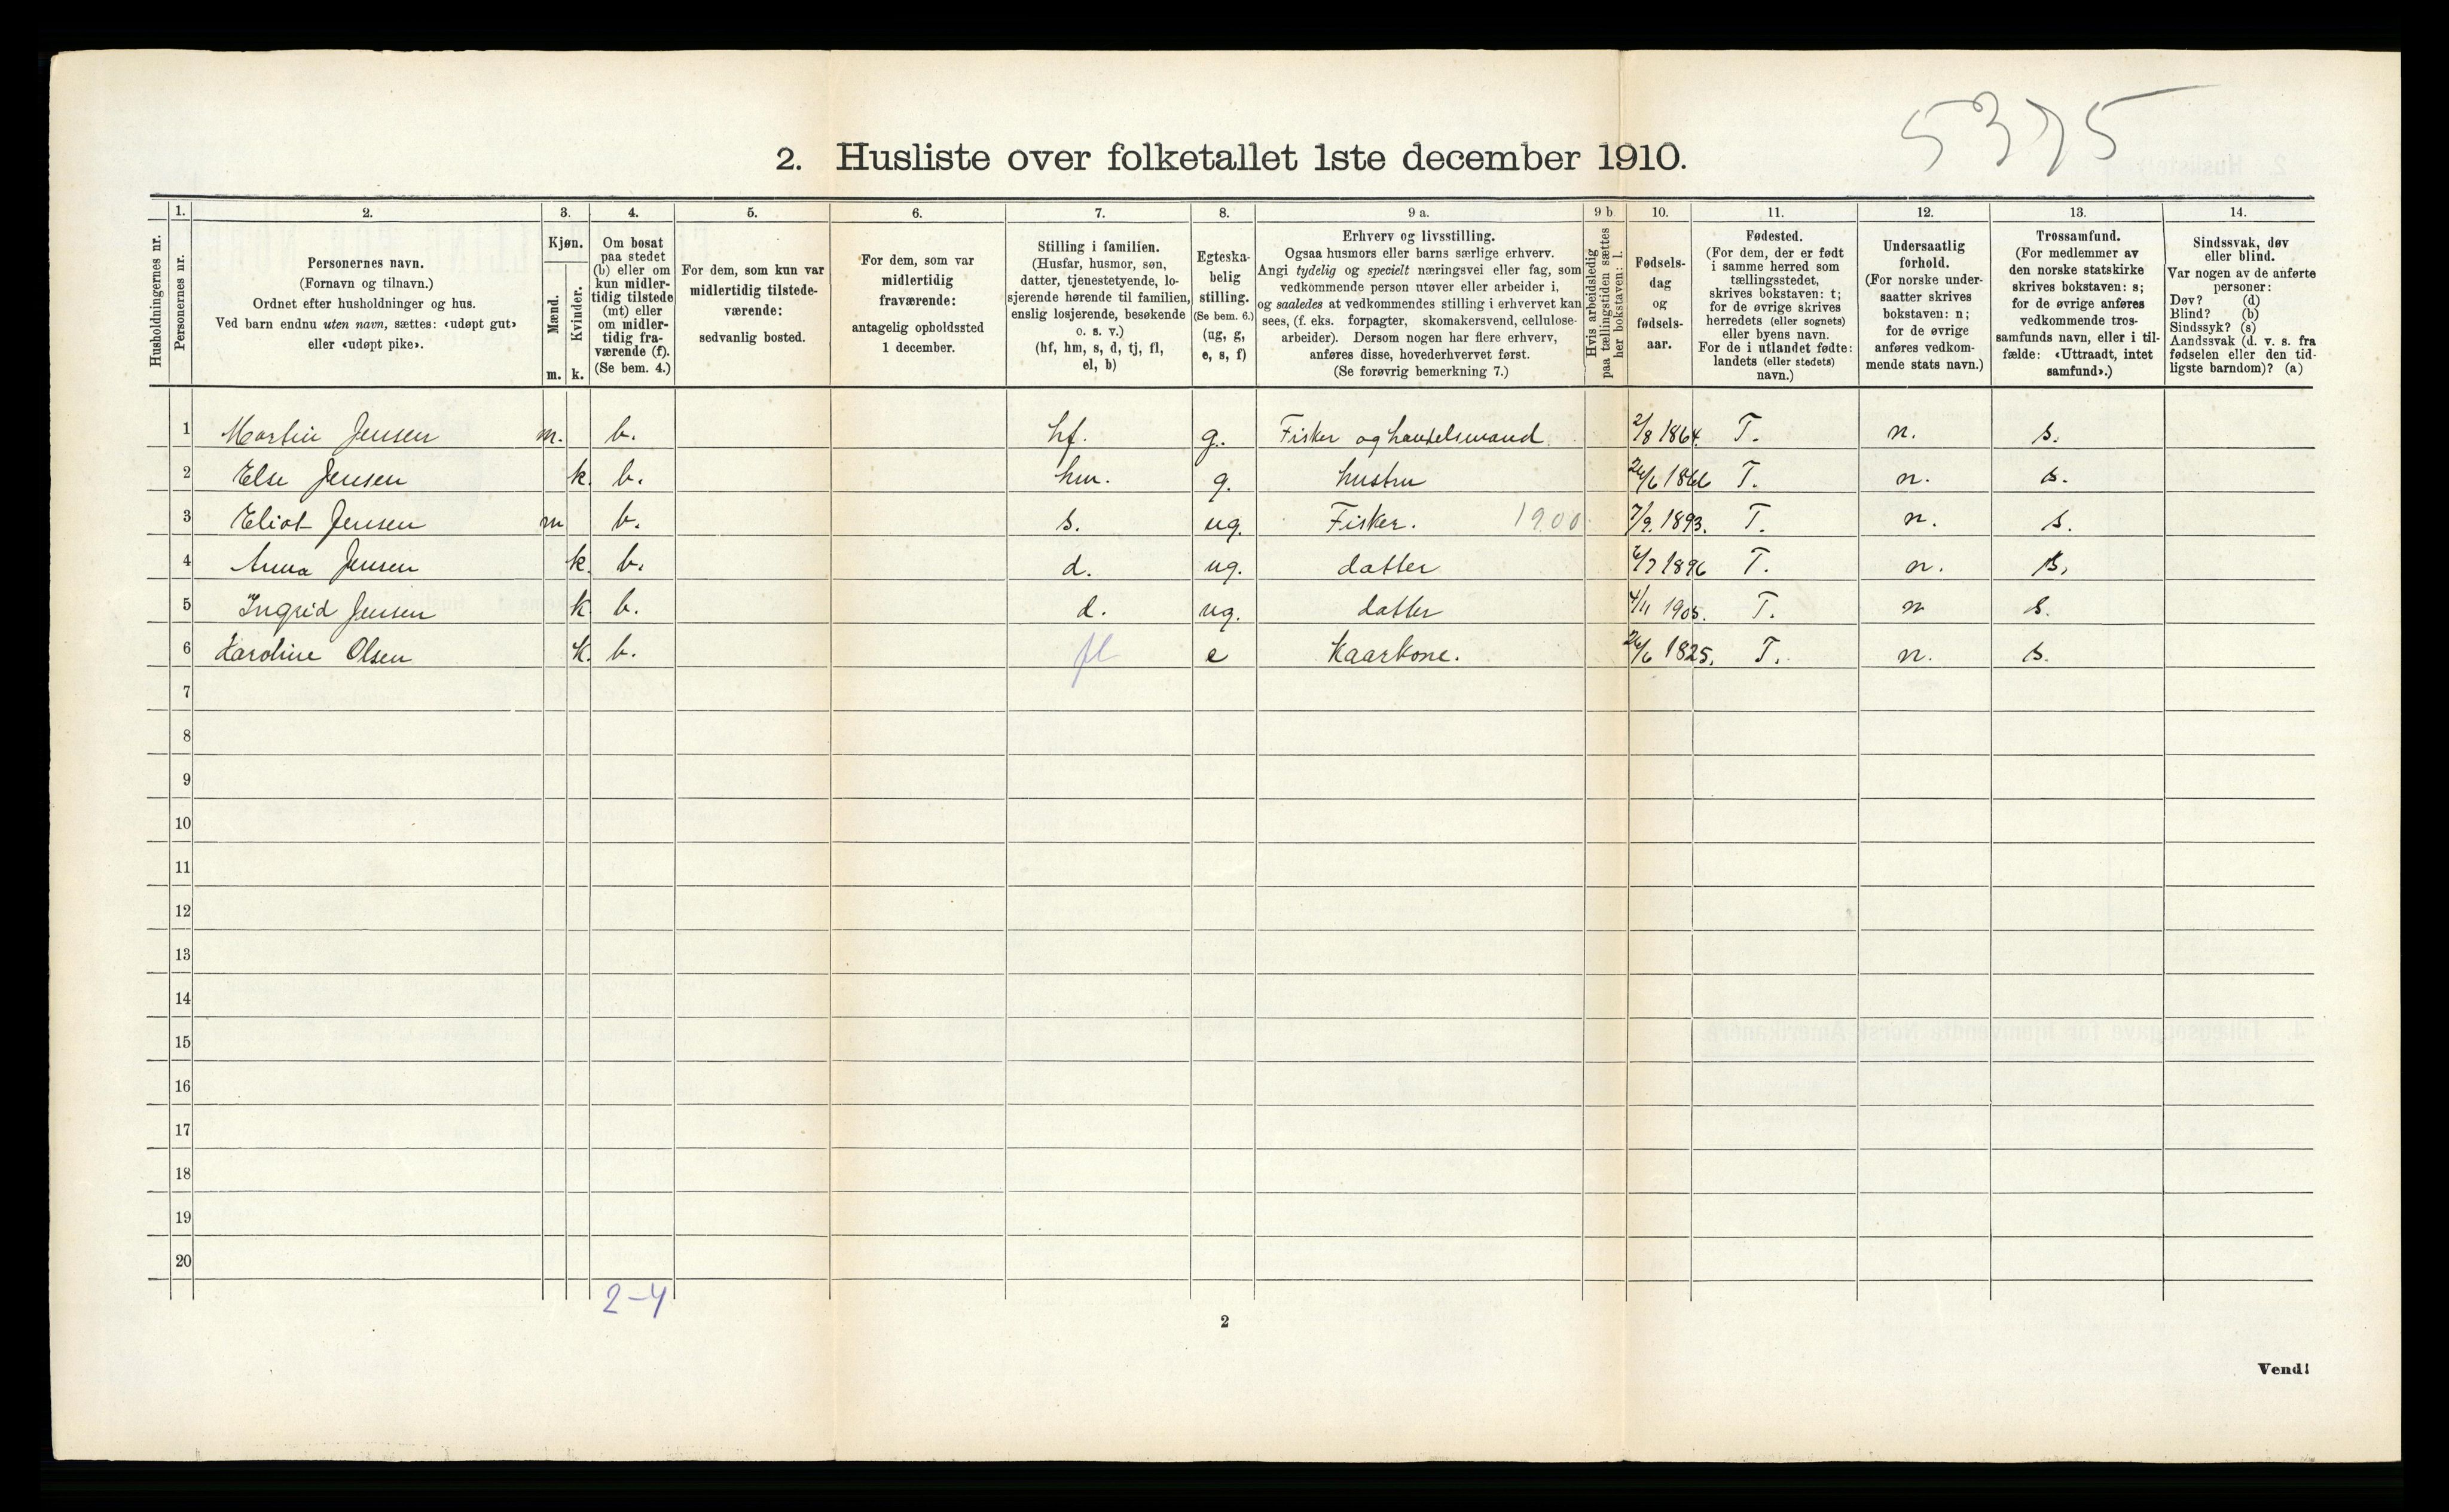 5375
2. Husliste over folketallet 1ste december 1910.
Husholdningernes nr.
1.
Personernes nr.
2.
Personernes navn.
(Fornavn og tilnavn.)
Ordnet efter husholdninger og hus.
Ved barn endnu uten navn, sættes: «udøpt gut»
eller «udøpt pike».
3.
Kjøn.
Mænd.
m.
Kvinder.
k.
4.
Om bosat
paa stedet
(b) eller om
kun midler-
tidig tilstede
(mt) eller
om midler-
tidig fra-
værende (f).
(Se bem. 4.)
5.
For dem, som kun var
midlertidig tilstede-
værende:
sedvanlig bosted.
6.
For dem, som var
midlertidig
fraværende:
antagelig opholdssted
1 december.
7.
Stilling i familien.
(Husfar, husmor, søn,
datter, tjenestetyende, lo-
sjerende hørende til familien,
enslig losjerende, besøkende
o. s. v.)
(hf, hm, s, d, tj, fl,
el, b)
8.
Egteska-
belig
stilling.
(Se bem. 6.)
(ug, g,
e, s, f)
9 a.
Erhverv og livsstilling.
Ogsaa husmors eller barns særlige erhverv.
Angi tydelig og specielt næringsvei eller fag, som
vedkommende person utøver eller arbeider i,
og saaledes at vedkommendes stilling i erhvervet kan
sees, (f. eks. forpagter, skomakersvend, cellulose-
arbeider). Dersom nogen har flere erhverv,
anføres disse, hovederhvervet først.
(Se forøvrig bemerkning 7.)
9 b
Hvis arbeidsledig
paa tællingstiden sættes
her bokstaven: l.
10.
Fødsels-
dag
og
fødsels-
aar.
11.
Fødested.
(For dem, der er født
i samme herred som
tællingsstedet,
skrives bokstaven: t;
for de øvrige skrives
herredets (eller sognets)
eller byens navn.
For de i utlandet fødte:
landets (eller stedets)
navn.)
12.
Undersaatlig
forhold.
(For norske under-
saatter skrives
bokstaven: n;
for de øvrige
anføres vedkom-
mende stats navn.)
13.
Trossamfund.
(For medlemmer av
den norske statskirke
skrives bokstaven: s;
for de øvrige anføres
vedkommende tros-
samfunds navn, eller i til-
fælde: «Uttraadt, intet
samfund».)
14.
Sindssvak, døv
eller blind.
Var nogen av de anførte
personer:
Døv? (d)
Blind? (b)
Sindssyk? (s)
Aandssvak (d. v. s. fra
fødselen eller den tid-
ligste barndom)? (a)
1 Martin Jensen m. b. hf. g. Fisker og handelsmand 2/8 1864. T. n. s.
2 Else Jensen k. b. hm. g. hustru 24/6 1866 T. n. s.
3 Eliot Jensen m b. s. ug. Fisker. 1900 7/9. 1893. T. n. s.
4 Anna Jensen k. b. d. ug. datter 1896 T. n. s.
5 Ingrid Jensen k b. d. ug. datter 4/11 1905. T. n s.
6 Karoline Olsen K. b. fl e Kaarkone. 24/6 1825. T. n. s.
7
8
9
10
11
12
13
14
15
16
17
18
19
20
2-4
2
Vend!